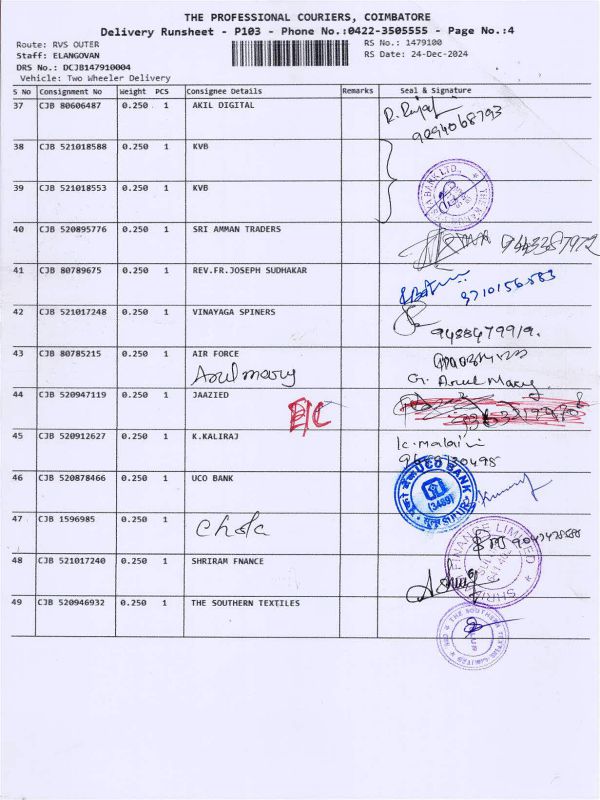 THE PROFESSIONAL COURIERS, COIMBATORE
Delivery Runsheet - P103 - Phone No.:0422-3505555 - Page No.:4
Route: RVS OUTER
RS No.: 1479100
Staff: ELANGOVAN
RS Date: 24-Dec-2024
DRS No.: DCJB147910004
Vehicle: Two Wheeler Delivery
S No Consignment No Weight PCS Consignee Details Remarks Seal & Signature
37 CJB 80606487 0.250 1 AKIL DIGITAL
38 CJB 521018588 0.250 1 KVB
39 CJB 521018553 0.250 1 KVB
40 CJB 520895776 0.250 1 SRI AMMAN TRADERS
41 CJB 80789675 0.250 1 REV.FR.JOSEPH SUDHAKAR
9710156583
42 CJB 521017248 0.250 1 VINAYAGA SPINERS
43 CJB 80785215 0.250 1 AIR FORCE
Arulmary G. Arul Mary
44 CJB 520947119 0.250 1 JAAZIED
45 CJB 520912627 0.250 1 K.KALIRAJ
46 CJB 520878466 0.250 1 UCO BANK
UCO BANK
(3489)
SULUR
47 CJB 1596985 0.250 1
Chola
48 CJB 521017240 0.250 1 SHRIRAM FNANCE
FINANCE LIMITED
49 CJB 520946932 0.250 1 THE SOUTHERN TEXTILES